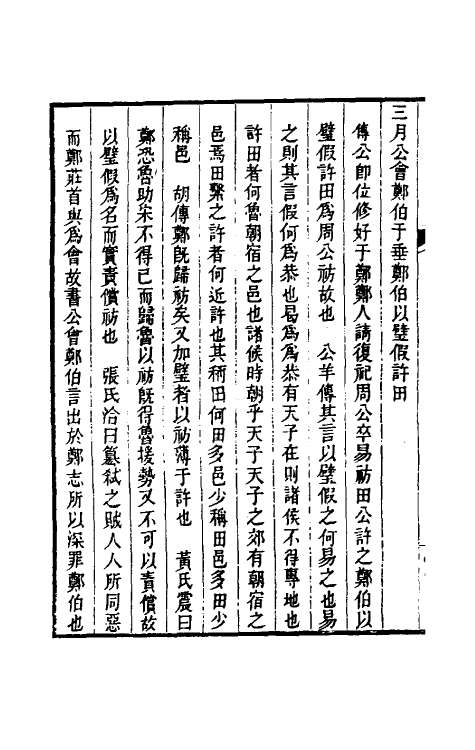 三月公會鄭伯于垂鄭伯以璧假許田
傳公卽位修好于鄭鄭人請復祀周公卒易祊田公許之鄭伯以
璧假許田爲周公祊故也　公羊傳其言以璧假之何易之也易
之則其言假何爲恭也曷爲爲恭有天子在則諸侯不得專地也
許田者何魯朝宿之邑也諸侯時朝乎天子天子之郊有朝宿之
邑焉田繫之許者何近許也其稱田何田多邑少稱田邑多田少
稱邑　胡傳鄭旣歸祊矣又加璧者以祊薄于許也　黃氏震曰
鄭恐魯助宋不得已而歸魯以祊旣得魯援勢又不可以責償故
以璧假爲名而實責償祊也　張氏洽曰簒弒之賊人人所同惡
而鄭莊首與爲會故書公會鄭伯言出於鄭志所以深罪鄭伯也